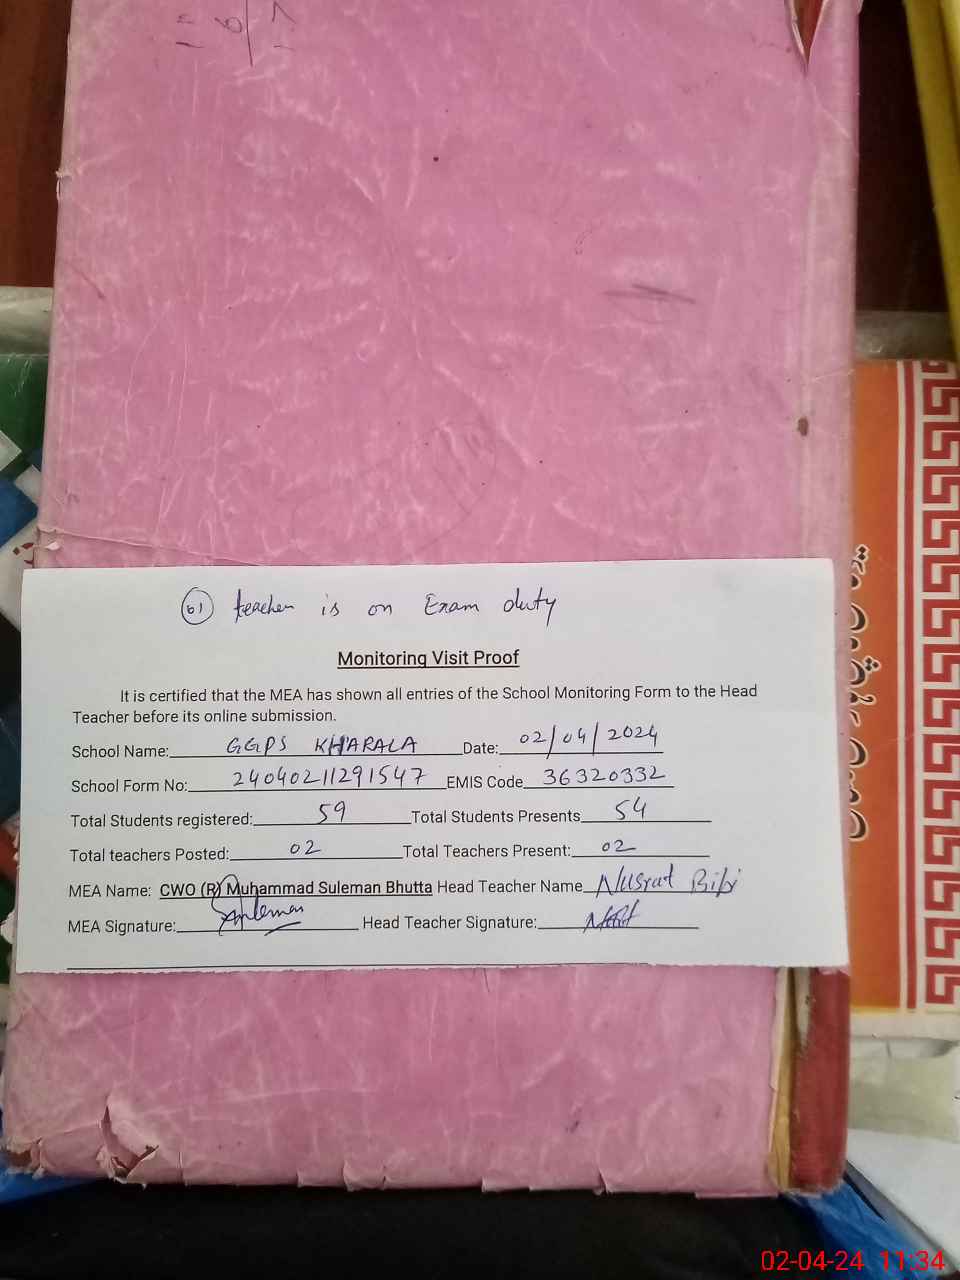 01 teacher is on Exam duty
Monitoring Visit Proof
It is certified that the MEA has shown all entries of the School Monitoring Form to the Head
Teacher before its online submission.
School Name: GGPS KHARALA Date: 02/04/2024
School Form No: 24040211291547 EMIS Code 36320332
Total Students registered: 59 Total Students Presents 54
Total teachers Posted: 02 Total Teachers Present: 02
MEA Name: CWO (R) Muhammad Suleman Bhutta Head Teacher Name Nusrat Bibi
MEA Signature: Suleman Head Teacher Signature:
02-04-24 11:34